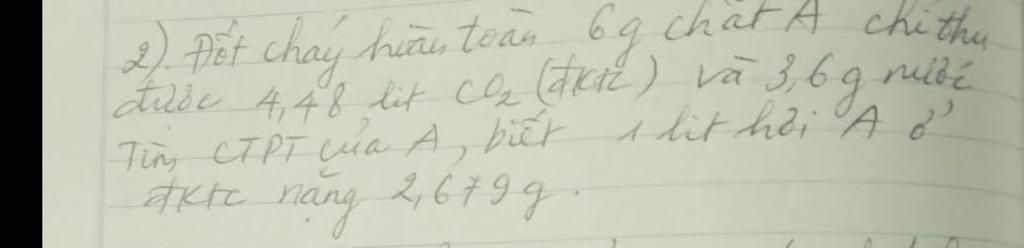 2). Đốt cháy hoàn toàn 6g chất A chỉ thu
được 4,48 lit CO2 (đktc) và 3,6g nước
Tìm CTPT của A, biết 1 lit hơi A ở
đktc nặng 2,679g.